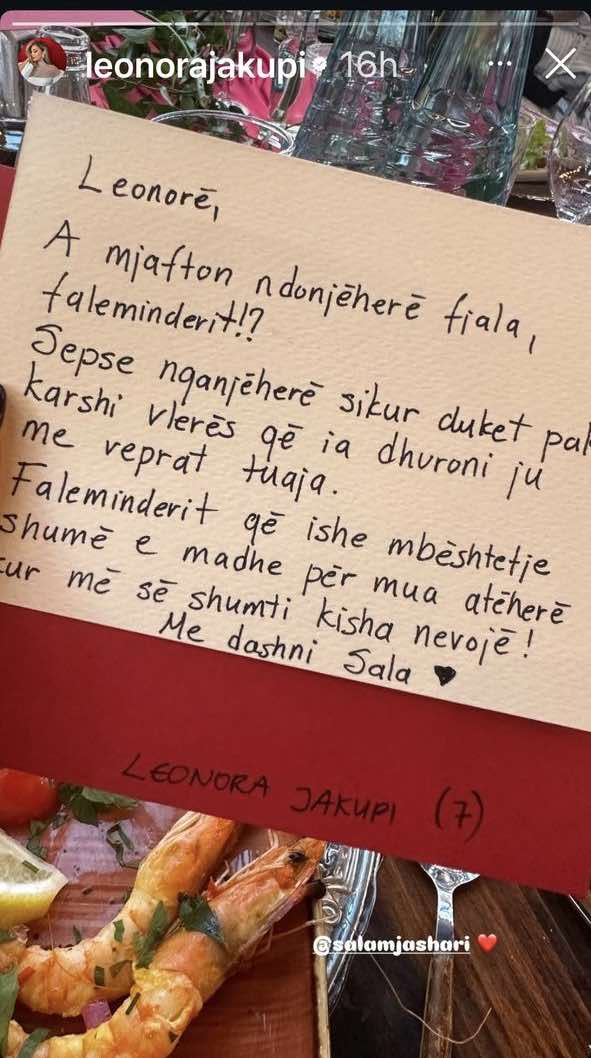 leonorajakupi 16h
Leonorē,
A mjafton ndonjēherē fjala,
faleminderit!?
Sepse nganjēherē sikur duket pak
karshi vlerēs qē ia dhuroni ju
me veprat tuaja.
Faleminderit qē ishe mbēshtetje
shumē e madhe pēr mua atēherē
kur mē sē shumti kisha nevojē!
Me dashni Sala
LEONORA JAKUPI (7)
@salamjashari